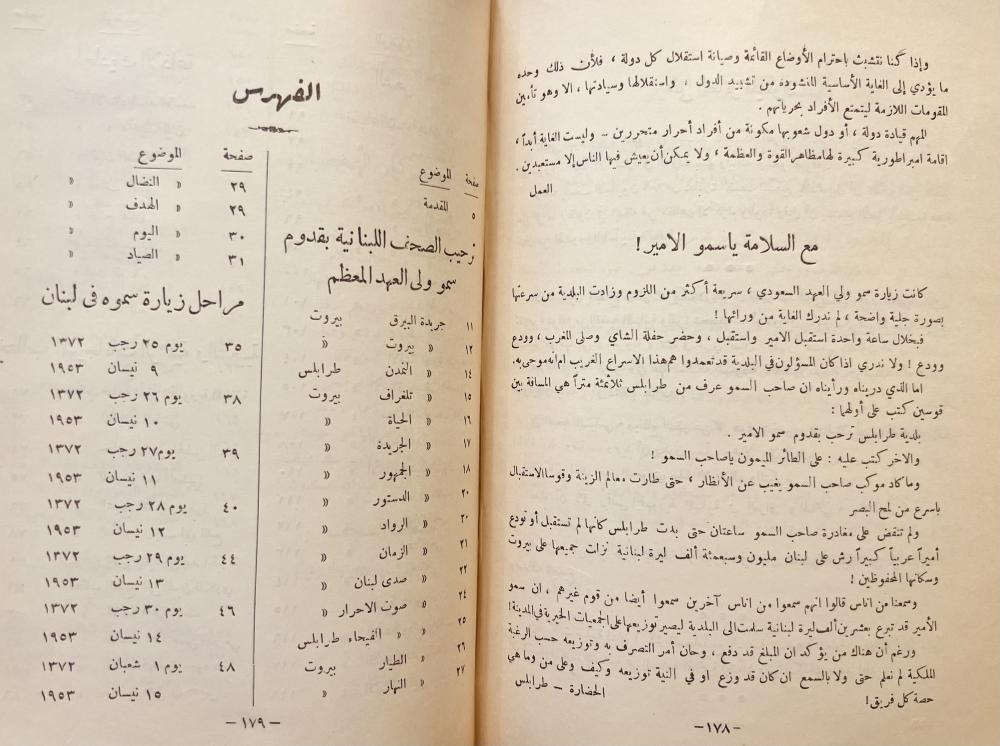 وإذا كنا نتشبث باحترام الأوضاع القائمة وصيانة استقلال كل دولة ، فلأن ذلك وحده
ما يؤدي إلى الغاية الأساسية المنشودة من تشييد الدول ، واستقلالها وسيادتها ، الا وهو تأمين
المقومات اللازمة ليتمتع الأفراد بحرياتهم .
المهم قيادة دولة ، أو دول شعوبها مكونة من أفراد أحرار متحررين .. وليست الغاية أبداً ،
اقامة امبراطورية كبيرة لها مظاهر القوة والعظمة ، ولا يمكن أن يعيش فيها الناس إلا مستعبدين .
العمل
مع السلامة ياسمو الامير !
كانت زيارة سمو ولي العهد السعودي ، سريعة أكثر من اللزوم وزادت البلدية من سرعتها
بصورة جلية واضحة ، لم ندرك الغاية من ورائها !
فبخلال ساعة واحدة استقبل الامير واستقبل ، وحضر حفلة الشاي وصلى المغرب ، وودع
وودع ! ولا ندري اذا كان المسؤلون في البلدية قد تعمدوا هم هذا الاسراع الغريب ام انه موحى به .
اما الذي دريناه ورأيناه ان صاحب السمو عرف من طرابلس ثلاثمئة متراً هي المسافة بين
قوسين كتب على أولهما :
بلدية طرابلس ترحب بقدوم سمو الامير .
والاخر كتب عليه : على الطائر الميمون ياصاحب السمو !
وما كاد موكب صاحب السمو يغيب عن الأنظار ، حتى طارت معالم الزينة وقوسا الاستقبال
باسرع من لمح البصر
ولم تنقض على مغادرة صاحب السمو ساعتان حتى بدت طرابلس كأنها لم تستقبل أو تودع
أميراً عربياً كبيراً رش على لبنان مليون وسبعمئة ألف ليرة لبنانية نزلت جميعها على بيروت
وسكانها المحفوظين !
وسمعنا من اناس قالوا انهم سمعوا من اناس آخرين سمعوا أيضا من قوم غيرهم ، ان سمو
الأمير قد تبرع بعشرين ألف ليرة لبنانية سلمت الى البلدية ليصير توزيعها على الجمعيات الخيرية في المدينة !
ورغم أن هناك من يؤكد ان المبلغ قد دفع ، وحان أمر التصرف به وتوزيعه حسب الرغبة
الملكية لم نعلم حتى ولا بالسمع ان كان قد وزع او في النية توزيعه وكيف وعلى من وما هي
حصة كل فريق !
الحضارة – طرابلس
– ١٧٨ –
الفهرس
صفحة الموضوع
٥ المقدمة
ترحيب الصحف اللبنانية بقدوم
سمو ولى العهد المعظم
١١ جريدة البيرق بيروت
١٢ » بيروت »
١٤ » التمدن طرابلس
١٥ » تلغراف بيروت
١٦ » الحياة »
١٧ » الجريدة »
١٨ » الجمهور »
٢٠ » الدستور »
٢٠ » الرواد »
٢١ » الزمان »
٢٢ » صدى لبنان »
٢٤ » صوت الاحرار »
٢٥ » الفيحاء طرابلس
٢٦ » الطيار بيروت
٢٧ » النهار »
صفحة الموضوع
٢٩ » النضال »
٢٩ » الهدف »
٣٠ » اليوم »
٣١ » الصياد »
مراحل زيارة سموه فى لبنان
٣٥ يوم ٢٥ رجب ١٣٧٢
٩ نيسان ١٩٥٣
٣٨ يوم ٢٦ رجب ١٣٧٢
١٠ نيسان ١٩٥٣
٣٩ يوم ٢٧ رجب ١٣٧٢
١١ نيسان ١٩٥٣
٤٠ يوم ٢٨ رجب ١٣٧٢
١٢ نيسان ١٩٥٣
٤٤ يوم ٢٩ رجب ١٣٧٢
١٣ نيسان ١٩٥٣
٤٦ يوم ٣٠ رجب ١٣٧٢
١٤ نيسان ١٩٥٣
٤٨ يوم ١ شعبان ١٣٧٢
١٥ نيسان ١٩٥٣
– ١٧٩ –